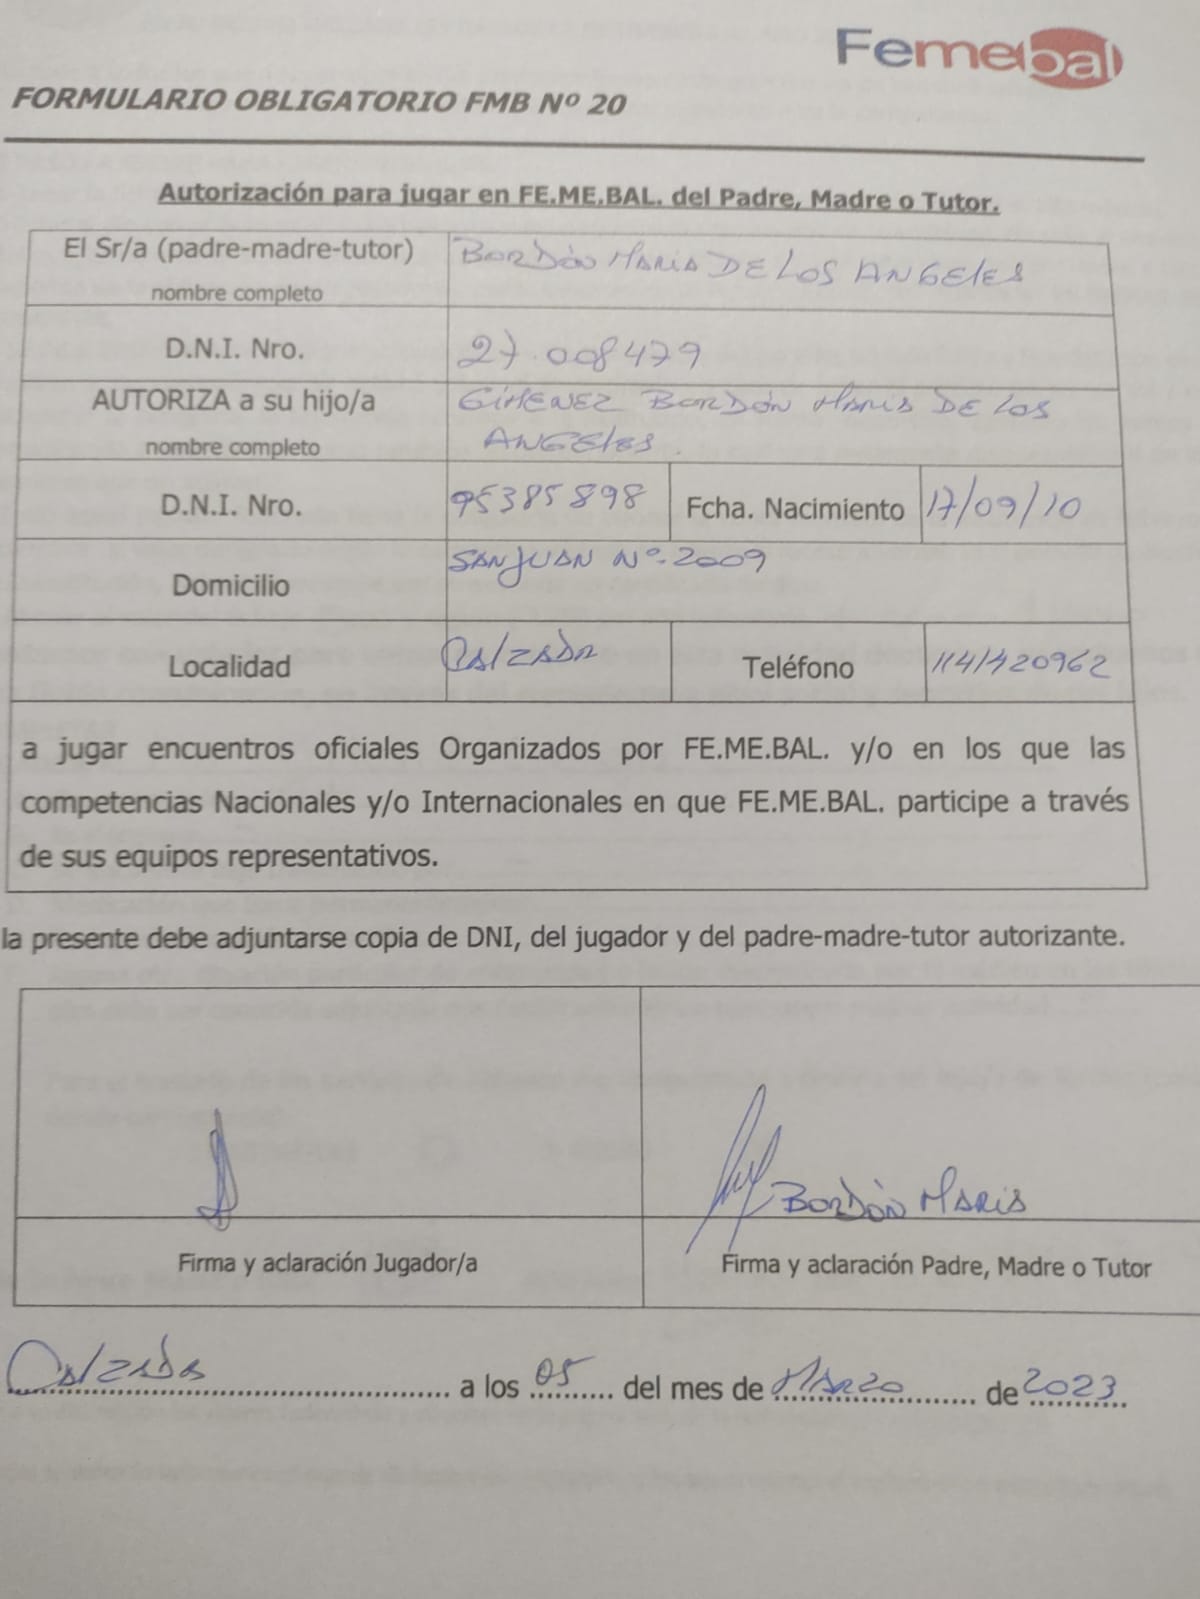 Femebal
FORMULARIO OBLIGATORIO FMB Nº 20
Autorización para jugar en FE.ME.BAL. del Padre, Madre o Tutor.
El Sr/a (padre-madre-tutor) nombre completo
BORDÓN MARIA DE LOS ANGELES
D.N.I. Nro. 27.008479
AUTORIZA a su hijo/a nombre completo
GIMENEZ BORDÓN MARIA DE LOS
ANGELES
D.N.I. Nro. 95385898 Fcha. Nacimiento 17/09/10
Domicilio SAN JUAN Nº 2009
Localidad CALZADA Teléfono
a jugar encuentros oficiales Organizados por FE.ME.BAL. y/o en los que las
competencias Nacionales y/o Internacionales en que FE.ME.BAL. participe a través
de sus equipos representativos.
la presente debe adjuntarse copia de DNI, del jugador y del padre-madre-tutor autorizante.
BORDÓN MARIA
Firma y aclaración Jugador/a Firma y aclaración Padre, Madre o Tutor
Calzada a los 05 del mes de MARZO de 2023